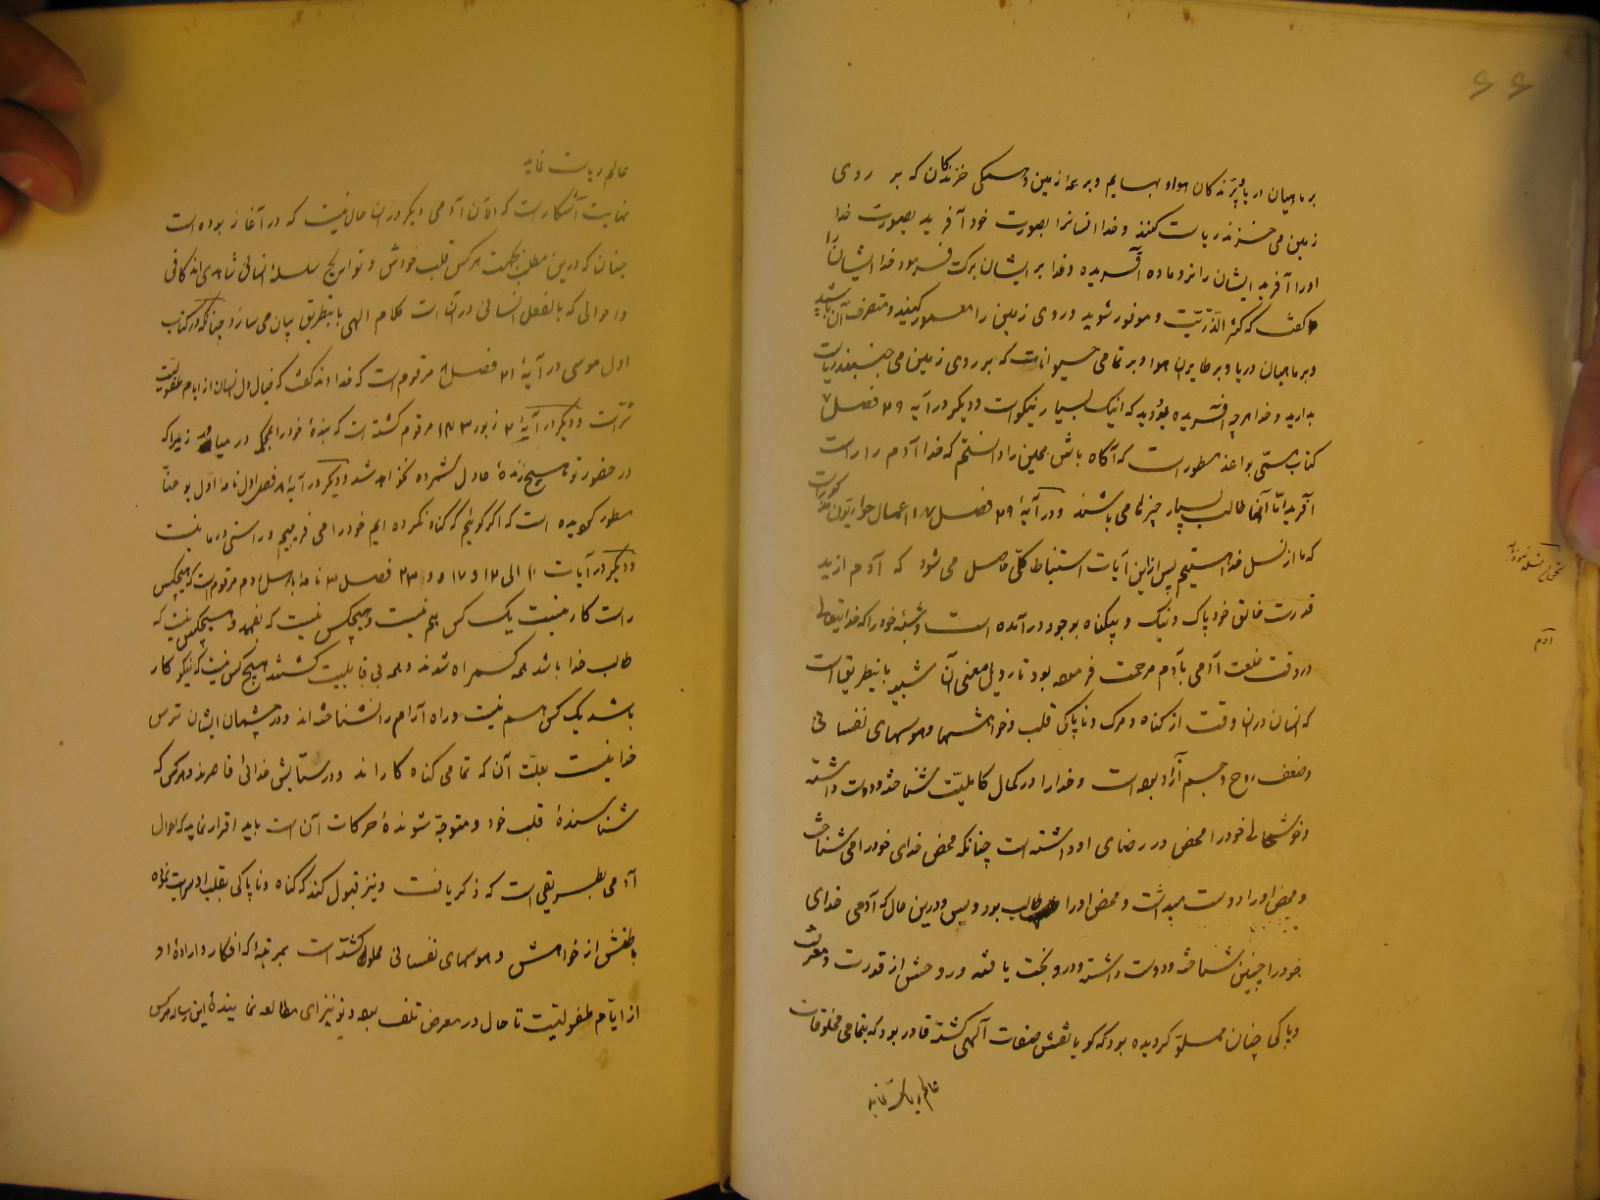 ۶۶
بر ماهیان دریا و پرندگان هوا و بهایم و بر همهٔ زمین و همگی خزندگان که بر روی
زمین می خزند ریاست کنند و خدا انسانرا بصورت خود آفرید بصورت خدا
اورا آفرید ایشان را نر و ماده آفریده و خدا بر ایشان برکت فرمود خدا ایشان را
گفت که کثیر الذریّت و موفور شوید و روی زمین را معمور کنید و متصرف آن باشید
و بر ماهیان دریا و بر طایران هوا و بر تمامی حیواناتت که بر روی زمین می جنبند ریاست
بدارید و خدا هر چه آفریده بود دید که اینک بسیار نیکو است و دیگر در آیه ۲۹ فصل ۷
کتاب مسمّی بواعظ مسطور است که آگاه باش همین را دانستم که خدا آدم را راست
آفرید امّا آنها طالب بسیار چیزها می باشند و در آیهٔ ۲۹ فصل ۱۷ اعمال حواریّون مذکور است
که ما از نسل خدا هستیم پس از این آیات استنباط کلّی حاصل می شود که آدم از ید
قدرت خالق خود پاک و نیک و بیگناه بوجود در آمده است و شبه خود را که خدایتعالی
در وقت خلعت آدمی بآدم مرحمت فرموده بود تاویل معنی آن شبیه باینطریق است
که انسان در آن وقت از گناه و مرگ و ناپاکی قلب و خواهشها و هوسهای نفسانی
و ضعف روح و جسم آزاد بوده است و خدا را در کمال کاملیّت شناخته و دوست داشته
و خوشحالی خود را محض در رضای او داشته است چنانکه محض خدای خود را می شناخت
و محض اورا دوست میداشت و محض اورا طالب بود و بس و درین حال که آدمی خدای
خود را چنین شناخته و دوست داشته و در و نجت یافته و روحش از قدرت و معرفت
و پاکی چنان مملوّ گردیده بود که گویا نقش صفات آلهی گشته قادر بود که بتمامی مخلوقات
عالم ریاست نماید
آدم
عالم ریاست نماید
نهایت آشکار است که الآن آدمی دیگر در آن حال نیست که در آغاز بوده است
چنان که درین مطلب بجهت هر کس قلب خودش و تواریخ سلسلهٔ انسانی شاهدی اند کافی
و احوالی که بالفعل انسانی در آن است کلام الهی باینطریق بیان می سازد چنانکه در کتاب
اول موسی در آیهٔ ۲۱ فصل ۸ مرقوم است که خداوند گفت که خیال دل انسان از ایام طفولیّت
شرّاست و دیگر در آیهٔ ۲ زبور ۱۴۳ مرقوم گشته است که بندهٔ خود را بمحکمه در میاور زیرا که
در حضور تو هیچ زندهٔ عادل شمرده نخواهد شد و دیگر در آیهٔ ۸ فصل اول نامهٔ اول یوحنّا
مسطور گردیده است که اگر گوئیم که گناه نکرده ایم خود را می فریبیم و راستی در ما نیست
و دیگر در آیات ۱۰ الی ۱۲ و ۱۷ و ۲۳ فصل ۳ نامهٔ باهل روم مرقوم است که هیچکس
راست کار نیست یک کس هم نیست و هیچکس نیست که بفهمد و هیچکس نیست که
طالب خدا باشد همه گمراه شدند و همه بی قابلیت گشتند هیچ کس نیست که نیکو کار
باشد یک کس هم نیست و راه آرام را نشناخته اند و در چشمان ایشان ترس
خدا نیست بعلّت آن که تمامی گناه کاراند و در ستایش خدائی قاصرند و هر کس که
شناسندهٔ قلب خود و متوجّه شوندهٔ حرکات آن است باید اقرار نماید که احوال
آدمی بطریقی است که ذکر یافت و نیز قبول کند که گناه و ناپاکی بقلب او سرایت نموده
باطنش از خواهش و هوسهای نفسانی مملو گشته است بمرتبهٔ که افکار و ارادهٔ او
از ایّام طفولیّت تا حال در معرض تلف بوده و تو نیز ای مطالعه نمایندهٔ این رساله هر کس